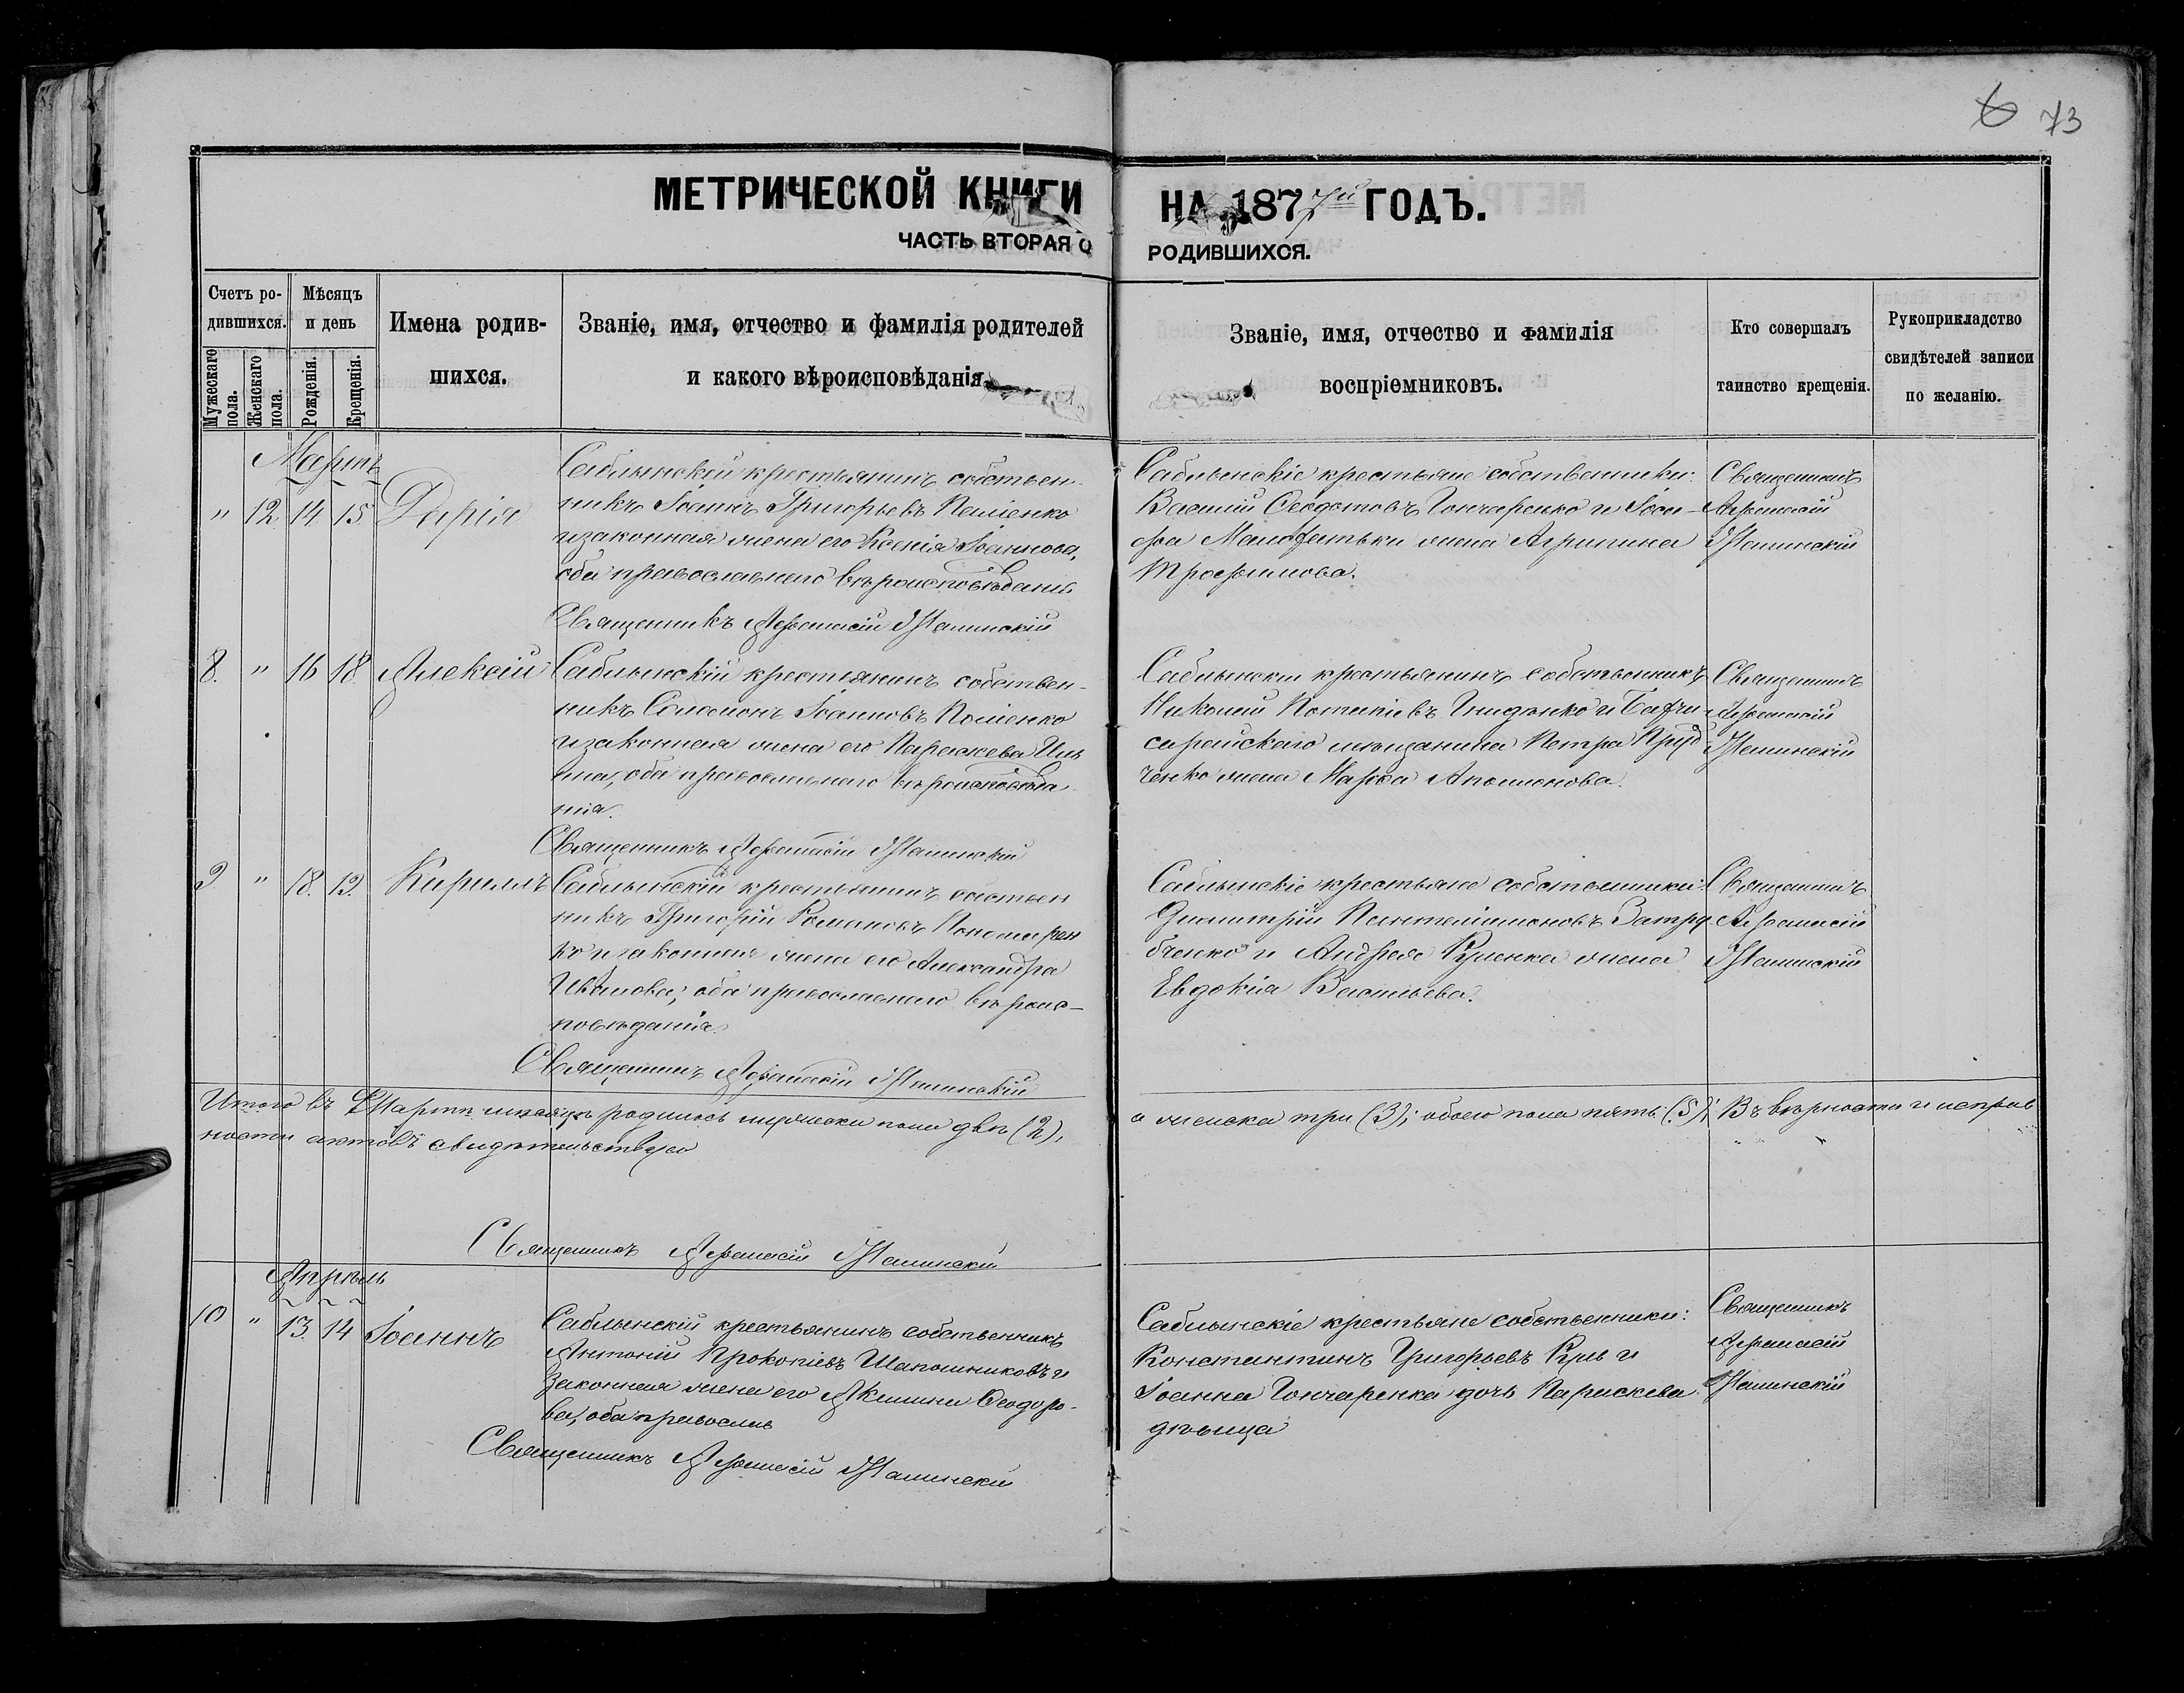 73
МЕТРИЧЕСКОЙ КНИГИ НА 1877й ГОДЪ.
ЧАСТЬ ВТОРАЯ О РОДИВШИХСЯ.
Счетъ ро-
дившихся.
Мужескаго пола.
Женскаго пола.
Мѣсяцъ
и день
Рожденія.
Крещенія.
Имена родив-
шихся.
Званіе, имя, отчество и фамилія родителей
и какого вѣроисповѣданія.
Званіе, имя, отчество и фамилія
воспріемниковъ.
Кто совершалъ
таинство крещенія.
Рукоприкладство
свидѣтелей записи
по желанію.
Мартъ
" 12. 14 15. Дарія
Саблынскій крестьянинъ собствен-
никъ Іоаннъ Григорьевъ
и законная жена его Ксенія Іоаннова,
оба православнаго вѣроисповѣданія
Священникъ Афанасій
Саблынскіе крестьяне собственники:
Василій Ѳеодотовъ Гончаренко и Іоси-
фа жена Агрипина
Трофимова.
Священникъ
Афанасій
8. " 16 18. Алексій
Саблынскій крестьянинъ собствен-
никъ Соломонъ Іоанновъ
и законная жена его Параскева Иль
ина, оба православнаго вѣроисповѣда
нія.
Священникъ Афанасій
Саблынскій крестьянинъ собственникъ
Николай Потапіевъ Гнидѣнко и Бахчи
сарайскаго мѣщанина Петра
ченко жена Марфа
Священникъ
Афанасій
9. " 18. 19. Кириллъ
Саблынскій крестьянинъ собствен
никъ Григорій Романовъ Пономарен
ко и законная жена его Александра
Иванова; оба православнаго вѣроис-
повѣданія.
Священникъ Афанасій
Саблынскіе крестьяне собственники:
Димитрій Пантелимоновъ
и Андрея жена
Евдокія Васильева.
Священникъ
Афанасій
Итого въ Мартѣ мѣсяцѣ родилось мужеска пола двѣ (2),
а женска три (3); обоего пола пять (5); Въ вѣрности и исправ
ности актовъ свидѣтельствую
Священникъ Афанасій
Апрѣль
10 " 13. 14 Іоаннъ
Саблынскій крестьянинъ собственникъ
Антоній Прокопіевъ Шапошниковъ и
законная жена его Акилина Ѳеодоро-
ва, оба православ
Священникъ Афанасій
Саблынскіе крестьяне собственники:
Константинъ Григорьевъ и
Іоанна Гончаренка дочь Параскева
дѣвица
Священникъ
Афанасій